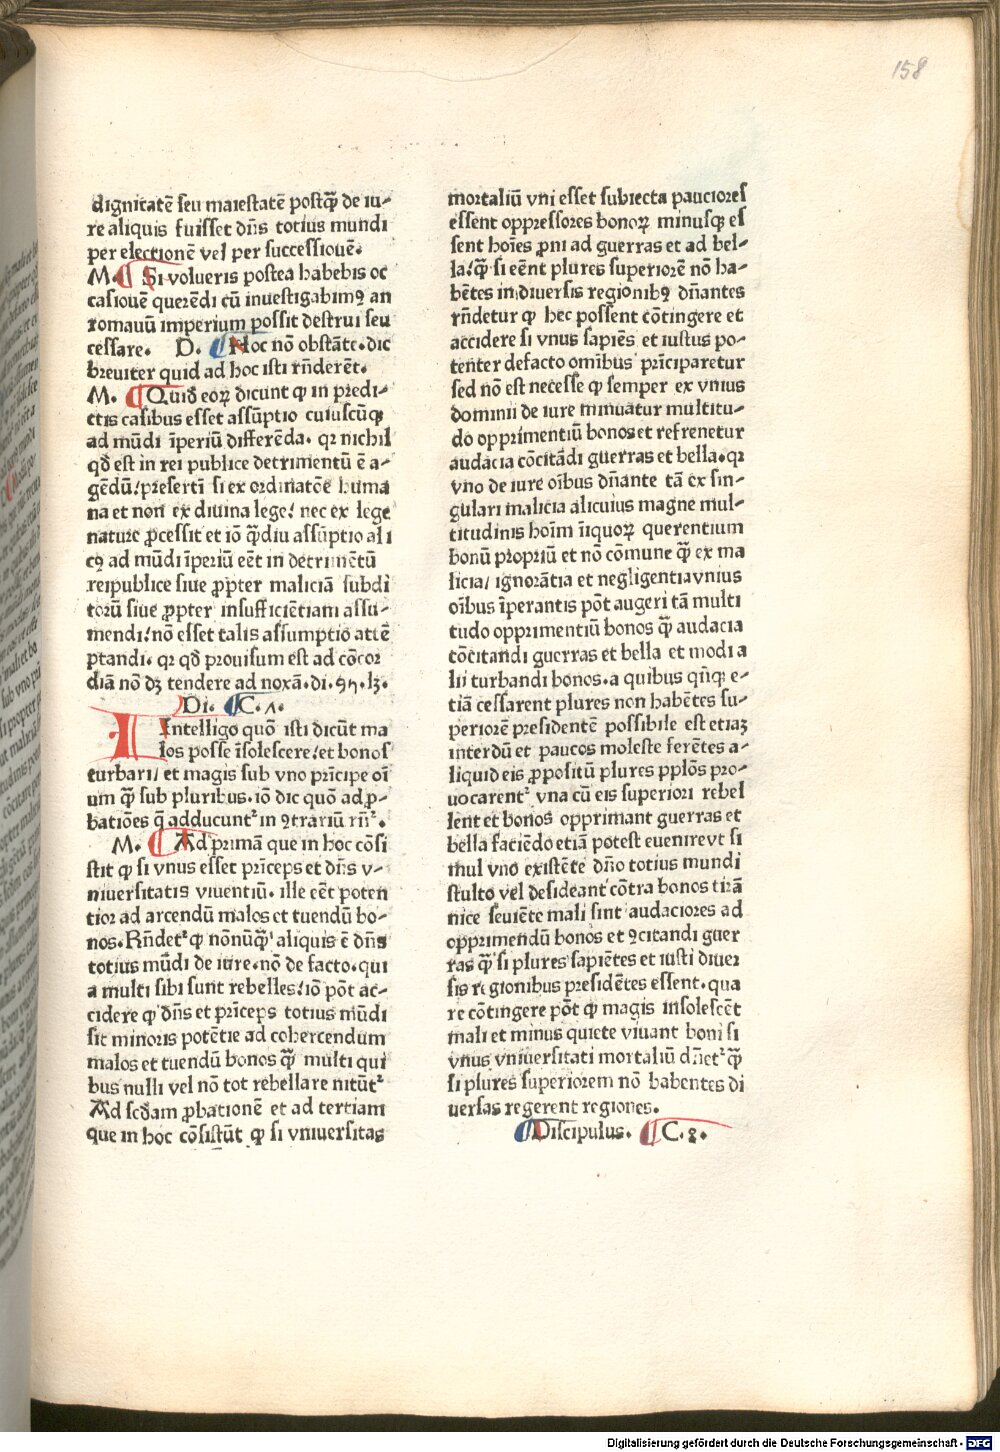 158
dignitatē seu maiestatē postꝙ̄ de iu-
re aliquis fuisset dn̄s totius mundi
per electionē vel per successionē.
M. ¶ Si volueris postea habebis oc
casionē querēdi cū inuestigabimꝰ an
romanū imperium possit destrui seu
cessare. D. ¶ Hoc nō obstāte. dic
breuiter quid ad hoc isti rn̄derēt.
M. ¶ Quid eoꝝ dicunt ꝙ in predi-
ctis casibus esset assūptio cuiuscūqꝫ
ad mūdi īperiū differēda. qꝛ nichil
qd̄ est in rei publice detrimentū ē a-
gēdū/ presertī si ex ordinatōe huma
na et non ex diuina lege/ nec ex lege
nature ꝓcessit et iō ꝙ̄diu assūptio ali
cꝰ ad mūdi īperiū eēt in detrimētū
reipublice siue ꝓpter maliciā subdi
torū siue ꝓpter insufficiētiam assu-
mendi/ nō esset talis assumptio attē
ptandi. qꝛ qd̄ prouisum est ad cōcor
diā nō dꝫ tendere ad noxā. di. 95. lꝫ.
Di. ¶ C. 1.
Intelligo quō isti dicūt ma
los posse īsolescere/ et bonos
turbari/ et magis sub vno prīcipe oī
um ꝙ̄ sub pluribus. iō dic quō ad ꝓ-
batiōes q̄ adducunt᷑ in ꝯtrariū rn̄᷑.
M. ¶ Ad primā que in hoc cōsi
stit ꝙ si vnus esset prīceps et dn̄s v-
niuersitatis viuentiū. ille eēt poten
tior ad arcendū malos et tuendū bo-
nos. Rn̄det᷑ ꝙ nōnūꝙ̄ aliquis ē dn̄s
totius mūdi de iure. nō de facto. qui
a multi sibi sunt rebelles/ iō pōt ac-
cidere ꝙ dn̄s et prīceps totius mūdi
sit minoris potētie ad cohercendum
malos et tuendū bonos ꝙ̄ multi qui
bus nulli vel nō tot rebellare nitūt᷑
Ad sc̄dam ꝓbationē et ad tertiam
que in hoc cōsistūt ꝙ si vniuersitas
mortaliū vni esset subiecta pauciores
essent oppressores bonoꝝ minusqꝫ es
sent hoīes ꝓni ad guerras et ad bel-
la/ ꝙ̄ si eēnt plures superiorē nō ha-
bētes in diuersis regionibꝰ dn̄antes
rn̄detur ꝙ hec possent cōtingere et
accidere si vnus sapiēs et iustus po-
tenter defacto omībus prīciparetur
sed nō est necesse ꝙ semper ex vnius
dominii de iure minuatur multitu-
do opprimentiū bonos et refrenetur
audacia cōcitādi guerras et bella. qꝛ
vno de iure oībus dn̄ante tā ex sin-
gulari malicia alicuius magne mul-
titudinis hoīm īiquoꝝ querentium
bonū propriū et nō cōmune ꝙ̄ ex ma
licia/ ignorātia et negligentia vnius
oībus īperantis pōt augeri tā multi
tudo opprimentiū bonos ꝙ̄ audacia
cōcitandi guerras et bella et modi a
lii turbandi bonos. a quibus qn̄qꝫ e-
tiā cessarent plures non habētes su-
periorē presidentē possibile est etiaꝫ
interdū et paucos moleste ferētes a-
liquid eis ꝓpositū plures pplōs pro-
uocarent᷑ vna cū eis superiori rebel
lent et bonos opprimant guerras et
bella faciēdo etiā potest euenire vt si
mul vno existēte dn̄o totius mundi
stulto vel desideant cōtra bonos tirā
nice seuiēte mali sint audaciores ad
opprimendū bonos et ꝯcitandi guer
ras ꝙ̄ si plures sapiētes et iusti diuer
sis regionibus presidētes essent. qua
re cōtingere pōt ꝙ magis insolescēt
mali et minus quiete viuant boni si
vnus vniuersitati mortaliū dn̄et᷑ ꝙ̄
si plures superiorem nō habentes di
uersas regerent regiones.
¶ Discipulus. ¶ C. 2.
Digitalisierung gefördert durch die Deutsche Forschungsgemeinschaft - DFG